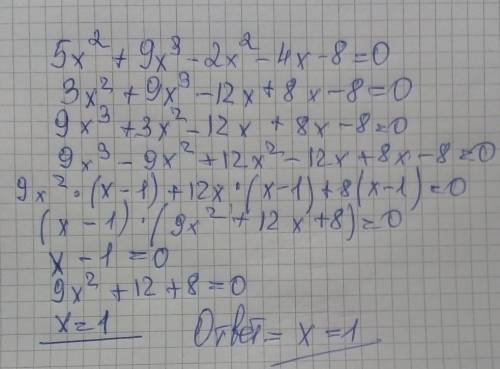 5x² + 9x³ - 2x² - 4x - 8 = 0
3x² + 9x³ - 12x + 8x - 8 = 0
9x³ + 3x² - 12x + 8x - 8 = 0
9x³ - 9x² + 12x² - 12x + 8x - 8 = 0
9x² · (x - 1) + 12x · (x - 1) + 8(x - 1) = 0
(x - 1) · (9x² + 12x + 8) = 0
x - 1 = 0
9x² + 12 + 8 = 0
x = 1 Ответ = x = 1